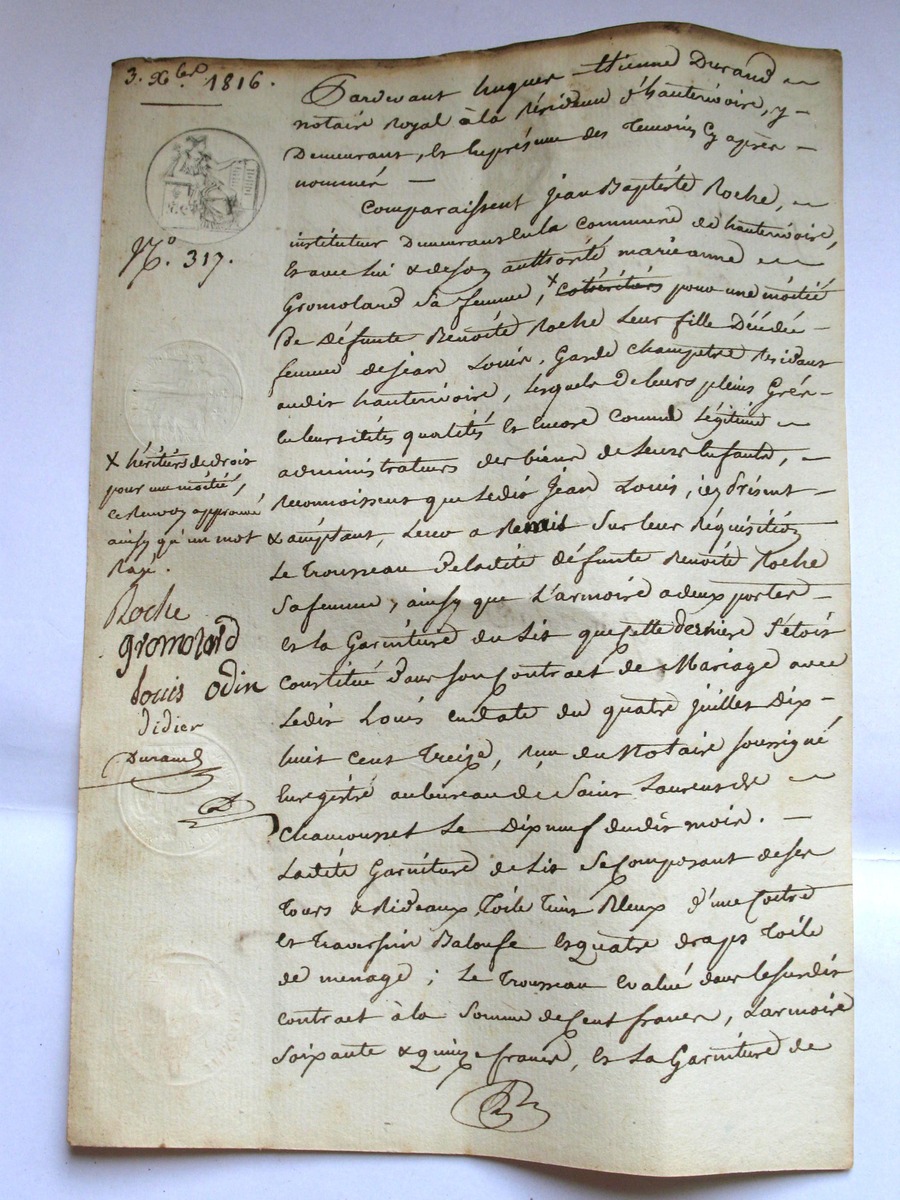 3. Xbre 1816.
Pardevant hugues Etienne Durand
notaire Royal à la Résidence d'hauterivoire, y
Demeurant, et En présence des Temoins Cy après
nommés
Comparaissent Jean Baptiste Roche,
instituteur Demeurant En la commune de hauterivoire,
Et avec lui & de son authorité marieanne
Gromolard sa femme, x cohéritiers pour une moitié
De défunte Benoîte Roche Leur fille Décédée
femme de Jean Louis, Garde champetre Residant
audit hauterivoire, Lesquels De leurs pleins Grés
En leursdites qualités Et Encore Comme Légitimes
administrateurs des biens de Leurs Enfants,
Reconnoissent que Ledit Jean Louis, icy présent
& acceptant, Leur a Remis Sur leur Réquisition
Le Trousseau De ladite défunte Benoîte Roche
sa femme, ainsy que L'armoire a deux portes
Et la Garniture du Lit que cette derniere S'etoit
Constitué Dans son Contract de Mariage avec
Ledit Louis En date du quatre juillet Dix
huit cent Treize, reçu du Notaire soussigné
Enregistré au bureau de Saint Laurent de
Chamousset Le Dix neuf dudit mois.
Ladite Garniture de Lit Se Composant de ses
Tours & Rideaux Toile Bleux D'une Coitre
Et Traversin Baloufe Et quatre draps Toile
de menage ; Le Trousseau Evalué dans Le susdit
contract à la Somme de Cent francs, L'armoire
Soixante & quinze francs, Et La Garniture de
No. 317.
x héritiers de droit
pour une moitié,
ce Renvoy approuvé
ainsy qu'un mot
Rayé.
Roche
gromolard
Louis odin
didier
Durand